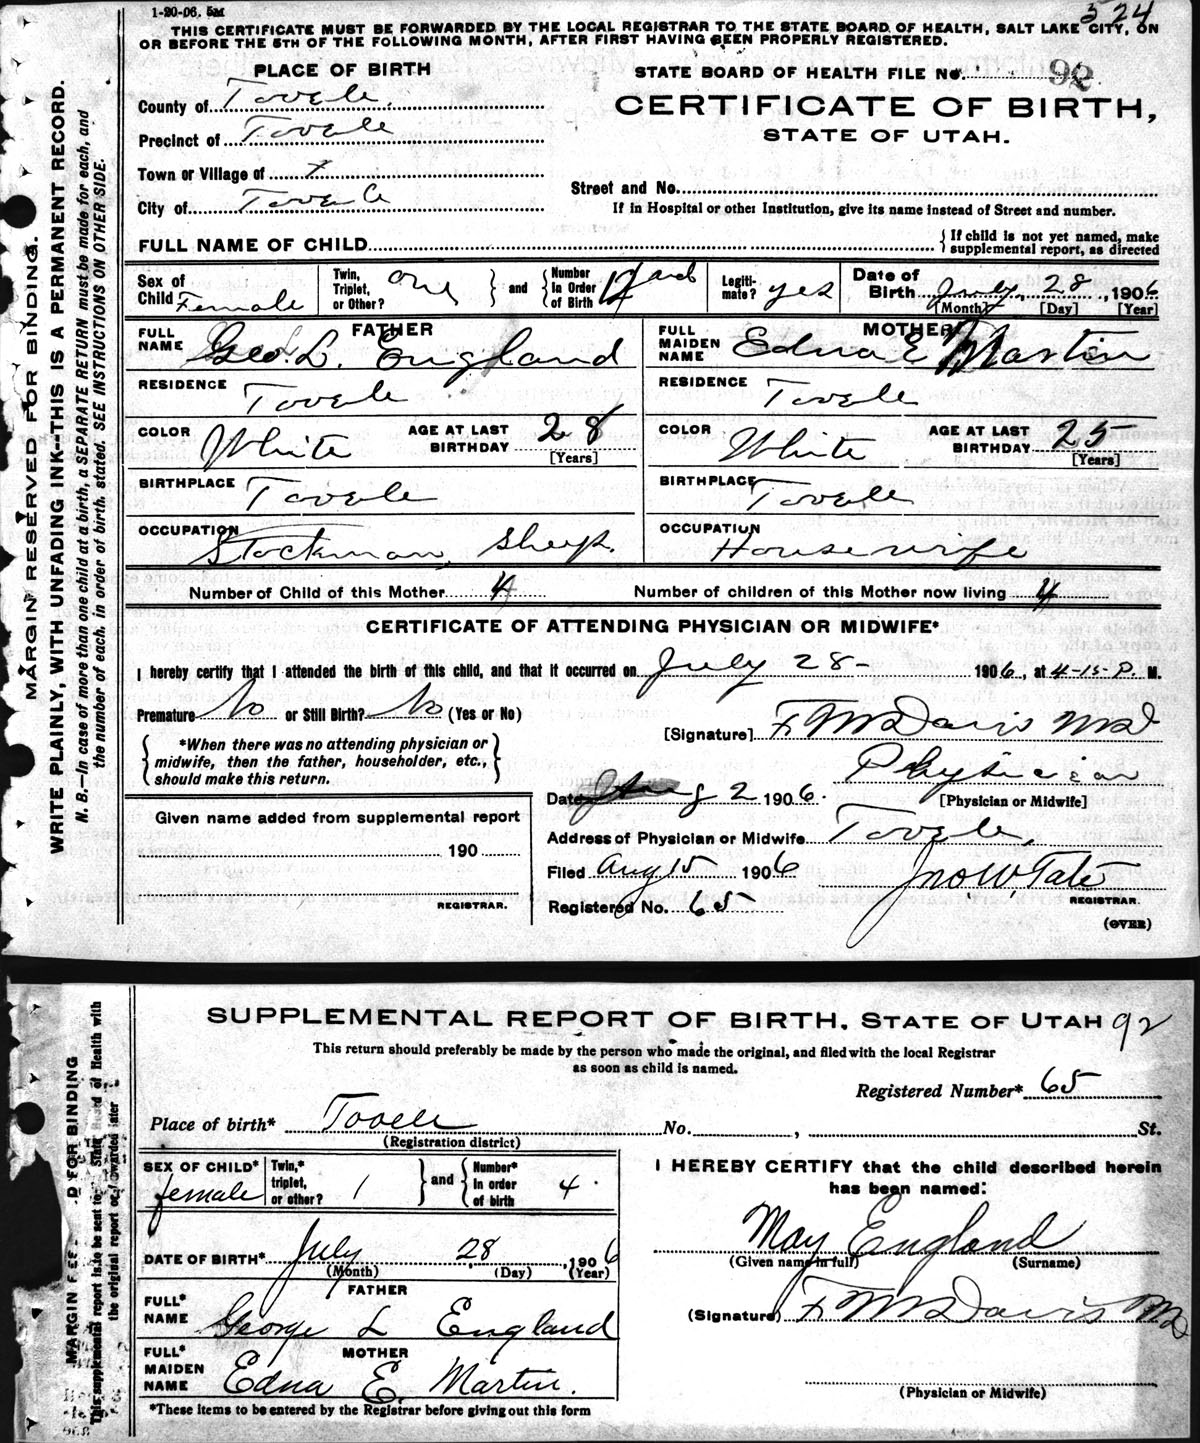 1-20-06. 5M
524
THIS CERTIFICATE MUST BE FORWARDED BY THE LOCAL REGISTRAR TO THE STATE BOARD OF HEALTH, SALT LAKE CITY, ON
OR BEFORE THE 5TH OF THE FOLLOWING MONTH, AFTER FIRST HAVING BEEN PROPERLY REGISTERED.
MARGIN RESERVED FOR BINDING.
WRITE PLAINLY, WITH UNFADING INK--THIS IS A PERMANENT RECORD.
N. B.—In case of more than one child at a birth, a SEPARATE RETURN must be made for each, and
the number of each, in order of birth, stated. SEE INSTRUCTIONS ON OTHER SIDE.
PLACE OF BIRTH
County of Tooele.
Precinct of Tooele
Town or Village of x
City of Tooele
STATE BOARD OF HEALTH FILE No. 92
CERTIFICATE OF BIRTH,
STATE OF UTAH.
Street and No.
If in Hospital or other Institution, give its name instead of Street and number.
FULL NAME OF CHILD { If child is not yet named, make
supplemental report, as directed
Sex of Child Female
Twin, Triplet, or Other? one } and { Number in Order of Birth
Legitimate? yes
Date of Birth July 28, 1906
[Month] [Day] [Year]
FATHER
FULL NAME Geo. L. England
RESIDENCE Tooele
COLOR White AGE AT LAST BIRTHDAY 28
[Years]
BIRTHPLACE Tooele
OCCUPATION Stockman, Sheep.
MOTHER
FULL MAIDEN NAME Edna E Martin
RESIDENCE Tooele
COLOR White AGE AT LAST BIRTHDAY 25
[Years]
BIRTHPLACE Tooele
OCCUPATION Housewife
Number of Child of this Mother 4 Number of children of this Mother now living 4
CERTIFICATE OF ATTENDING PHYSICIAN OR MIDWIFE*
I hereby certify that I attended the birth of this child, and that it occurred on July 28- 1906, at 4-15-P. M.
Premature No or Still Birth? No (Yes or No)
{ *When there was no attending physician or
midwife, then the father, householder, etc.,
should make this return. }
[Signature] F M Davis MD
Physician
[Physician or Midwife]
Date Aug 2 1906.
Address of Physician or Midwife Tooele.
Filed Aug 15 1906 Jno W, Tate
REGISTRAR.
Registered No. 65
(OVER)
Given name added from supplemental report
190
REGISTRAR.
SUPPLEMENTAL REPORT OF BIRTH, STATE OF UTAH 92
This return should preferably be made by the person who made the original, and filed with the local Registrar
as soon as child is named.
Registered Number* 65
Place of birth* Tooele No. , St.
(Registration district)
SEX OF CHILD* female
Twin,* triplet, or other? 1 } and { Number* in order of birth 4.
DATE OF BIRTH* July 28, 1906
(Month) (Day) (Year)
FATHER
FULL* NAME George L England
MOTHER
FULL* MAIDEN NAME Edna E. Martin.
*These items to be entered by the Registrar before giving out this form
I HEREBY CERTIFY that the child described herein
has been named:
May England
(Given name in full) (Surname)
(Signature) F M Davis MD
(Physician or Midwife)